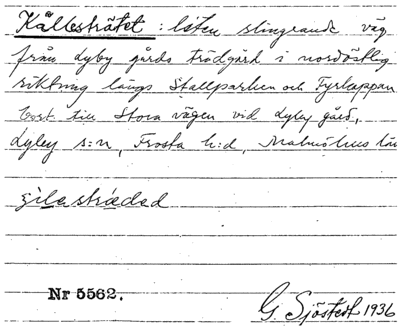 Källesträtet: liten slingrande väg
från dyby gårds trädgård i nordöstlig
riktning längs Stallparken och Fyrkappan
bort till Stora vägen vid dyby gård,
dyby s:n, Frosta h:d, Malmöhus län
Nr 5562.
G. Sjöstedt 1936